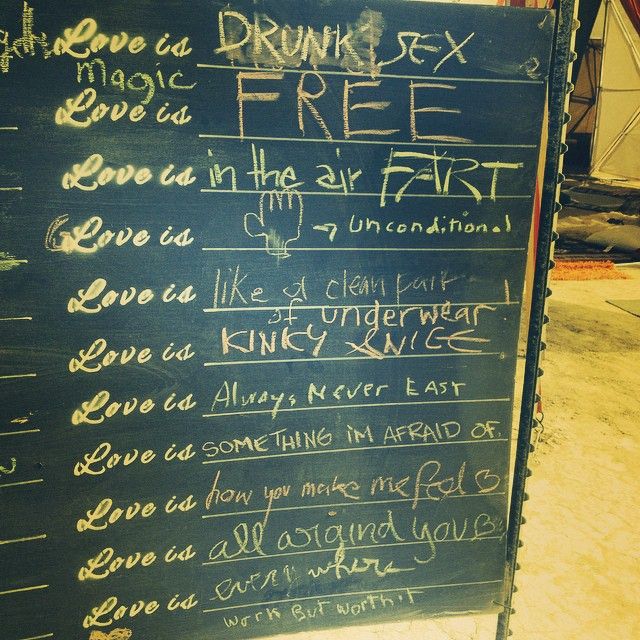 Love is DRUNK SEX
Magic
Love is FREE
Love is in the air FART
Love is → Unconditional
Love is like a clean pair
of underwear!
Love is KINKY & NICE
Love is Always, Never East
Love is SOMETHING IM AFRAID OF.
Love is how you makes me feel
Love is all argind you
Love is every where
Love is work But worth it